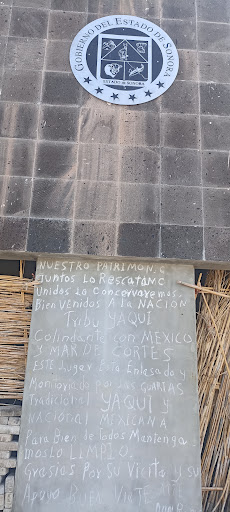 GOBIERNO DEL ESTADO DE SONORA
ESTADO DE SONORA
NUESTRO PATRIMON
Juntos Lo Rescatamo
Unidos Lo Conservaremos.
Bienvenidos A la NACIÓN
Tribu YAQUI
Colindante con MEXICO
Y MAR DE CORTES
ESTE Lugar Esta
Monitoriado por las GUARDIAS
Tradicional YAQUI y
NACIONAL MEXICANA
Para Bien de todos Mantenga
moslo LIMPIO.
Gracias Por Su Visita y su
Apoyo